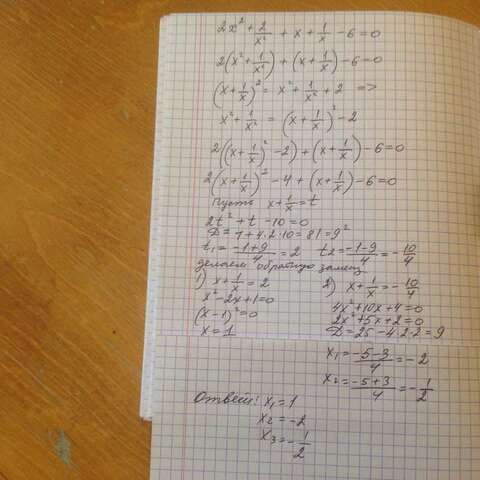 2x² + 2/x² + x + 1/x - 6 = 0
2(x² + 1/x²) + (x + 1/x) - 6 = 0
(x + 1/x)² = x² + 1/x² + 2 =>
x² + 1/x² = (x + 1/x)² - 2
2((x + 1/x)² - 2) + (x + 1/x) - 6 = 0
2(x + 1/x)² - 4 + (x + 1/x) - 6 = 0
Пусть x + 1/x = t
2t² + t - 10 = 0
D = 1 + 4·2·10 = 81 = 9²
t₁ = (-1+9)/4 = 2 t₂ = (-1-9)/4 = -10/4
делаем обратную замен
1) x + 1/x = 2
x² - 2x + 1 = 0
(x - 1)² = 0
x = 1
2) x + 1/x = -10/4
4x² + 10x + 4 = 0
2x² + 5x + 2 = 0
D = 25 - 4·2·2 = 9
x₁ = (-5-3)/4 = -2
x₂ = (-5+3)/4 = -1/2
Ответ: x₁ = 1
x₂ = -2
x₃ = -1/2